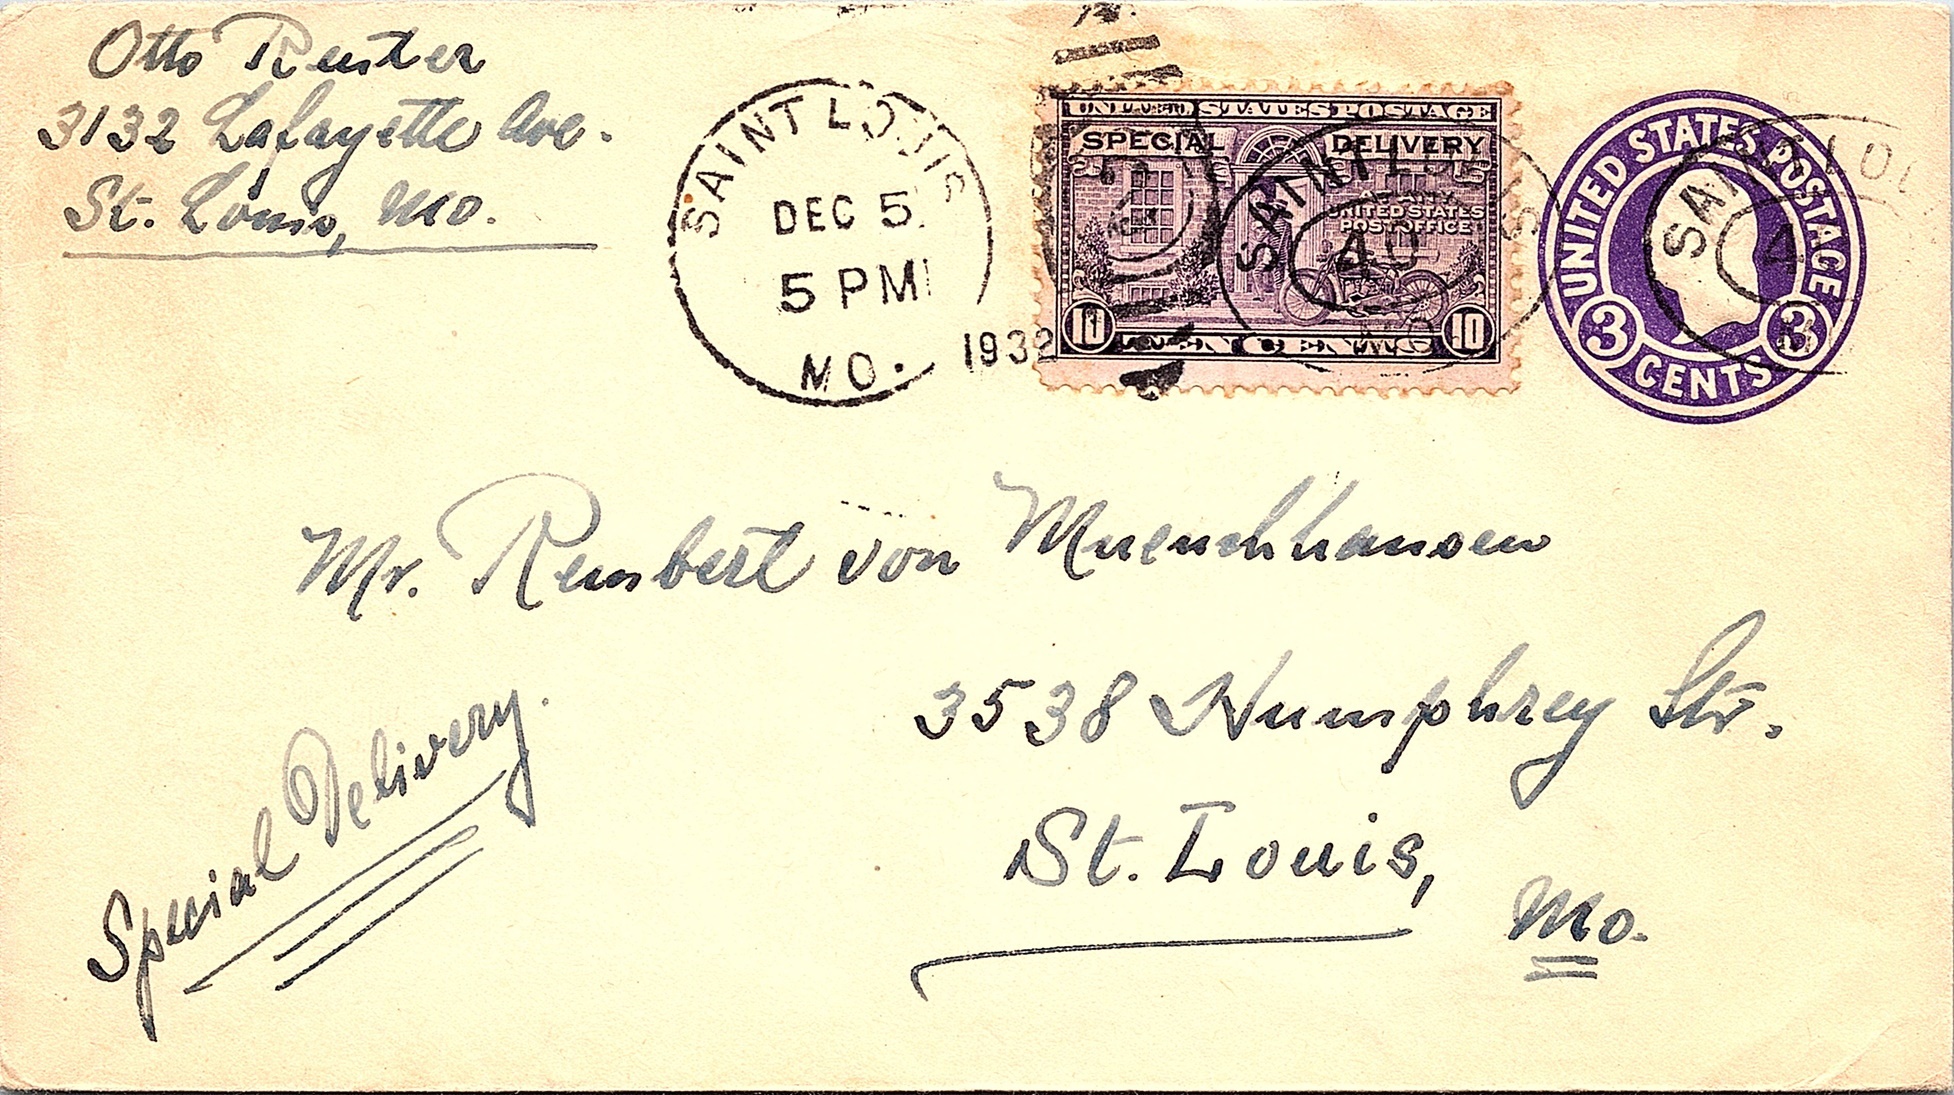 Otto Reuter
3132 Lafayette Ave.
St. Louis, Mo.
SAINT LOUIS
DEC 5
5 PM
MO.
1932
UNITED STATES POSTAGE
SPECIAL DELIVERY
AT ANY
UNITED STATES
POST OFFICE
10 TEN CENTS 10
SAINT LOUIS
40
MO
UNITED STATES POSTAGE
3 CENTS 3
SAINT LOU
4
Mr. Rembert von Muenchhausen
3538 Humphrey Str.
St. Louis,
Mo.
Special Delivery.